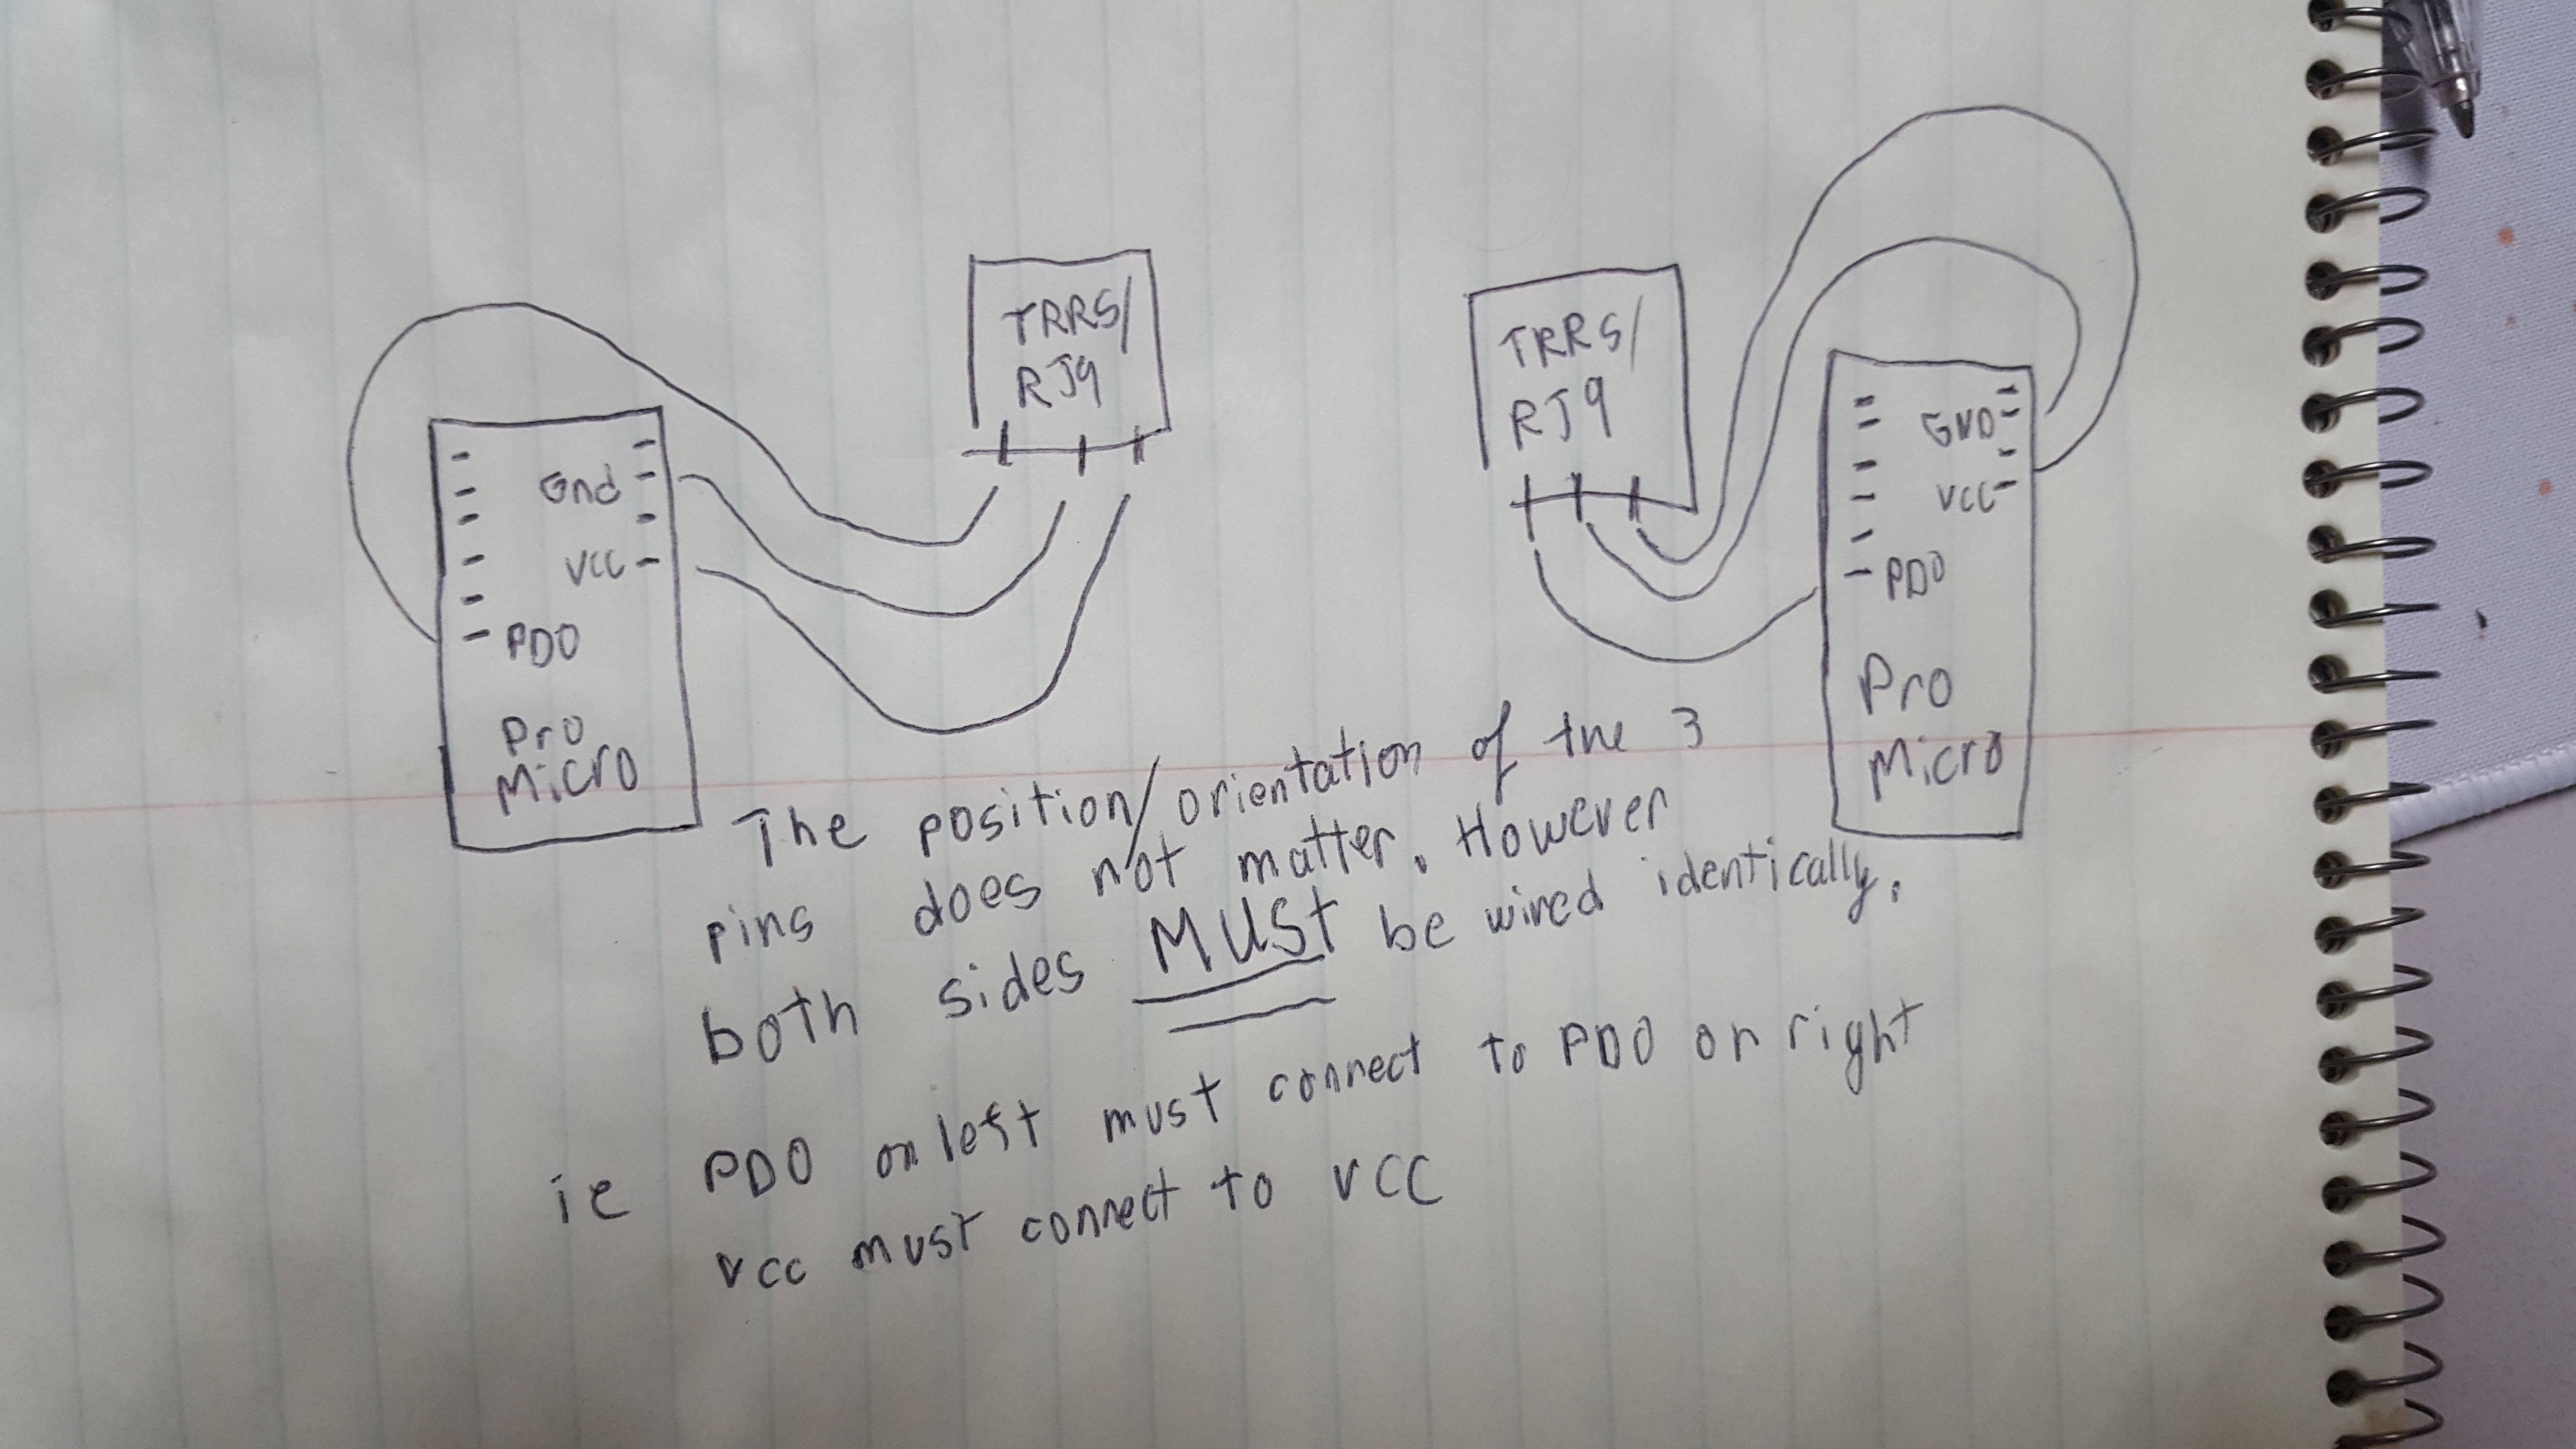 TRRS/
RJ9
TRRS/
RJ9
Gnd
VCC
PD0
Pro
Micro
GND
VCC
PD0
Pro
Micro
The position/orientation of the 3
pins does not matter. However
both sides MUST be wired identically.
ie PD0 on left must connect to PD0 on right
vcc must connect to VCC